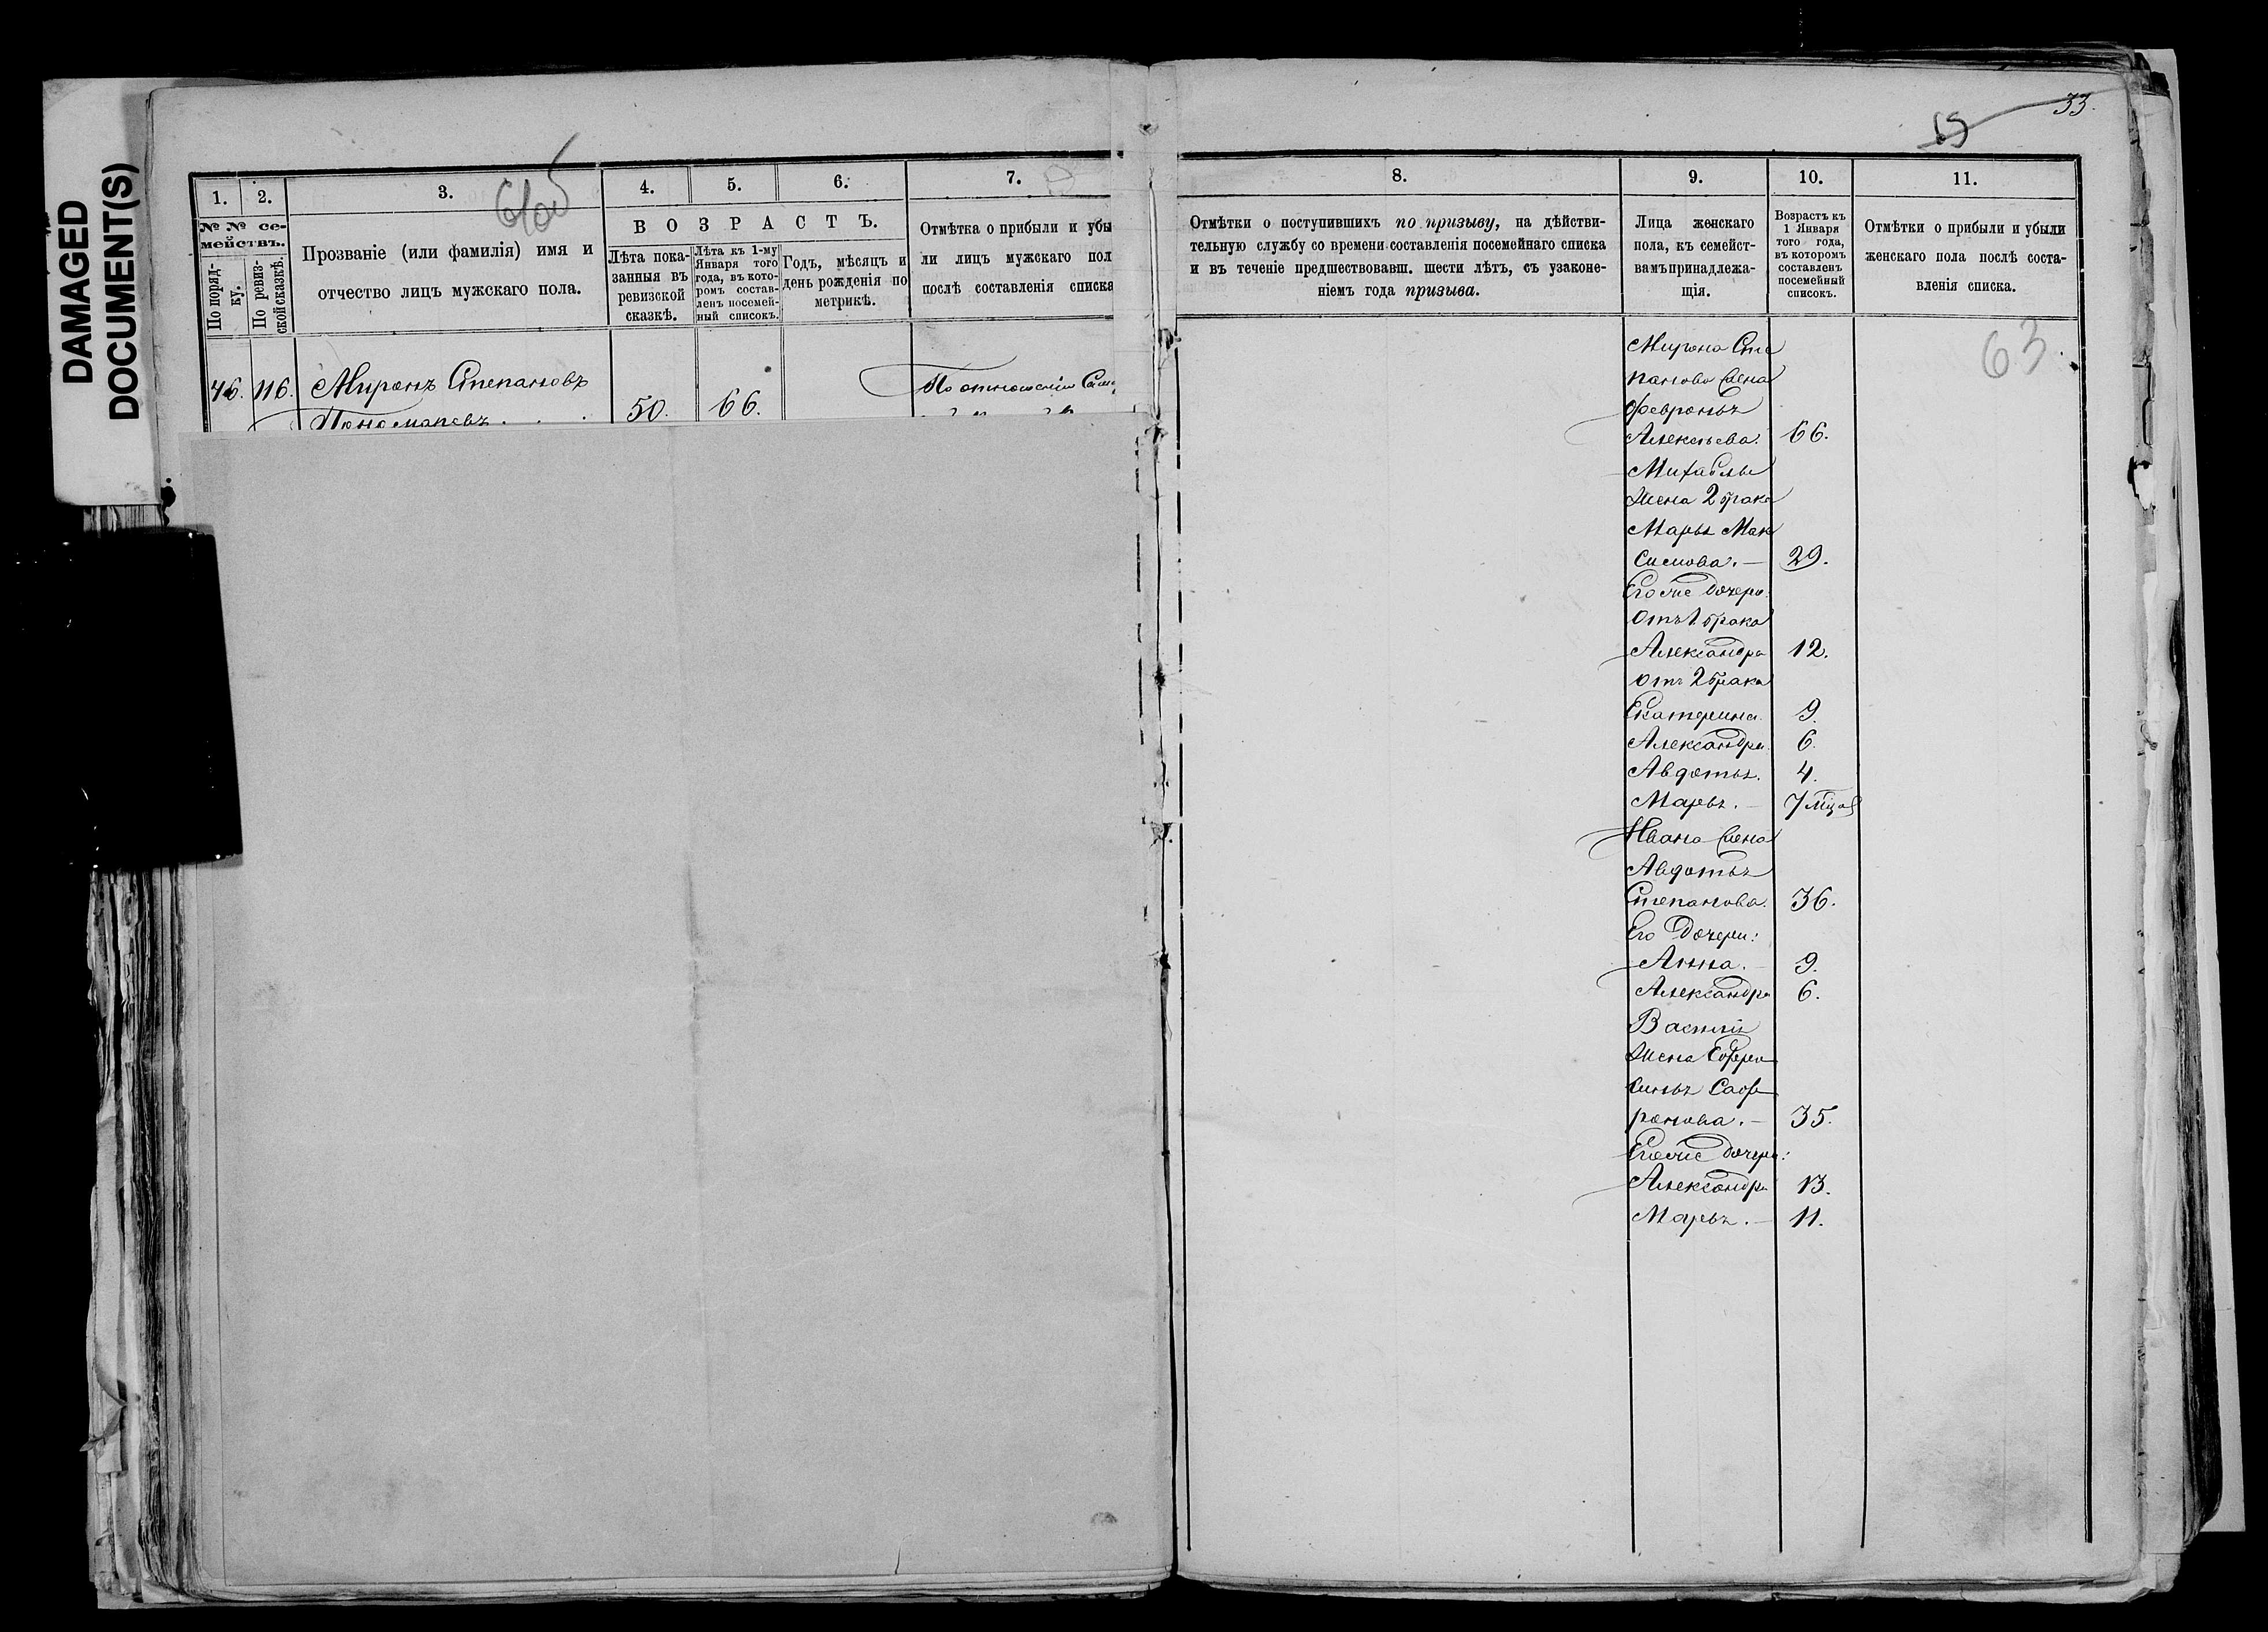 DAMAGED
DOCUMENT(S)
33.
1.
2.
3.
4.
5.
6.
7.
№ № се-
мействъ.
По поряд-
ку.
По ревиз-
ской сказкѣ.
Прозваніе (или фамилія) имя и
отчество лицъ мужскаго пола.
ВОЗРАСТЪ.
Лѣта пока-
занныя въ
ревизской
сказкѣ.
Лѣта къ 1-му
Января того
года, въ кото-
ромъ состав-
ленъ посемей-
ный списокъ.
Годъ, мѣсяцъ и
день рожденія по
метрикѣ.
Отмѣтка о прибыли и убы
ли лицъ мужскаго пол
послѣ составленія списка
46. 116. Миронъ Степановъ
Пономаревъ . . 50. 66.
По отношенію
8.
9.
10.
11.
Отмѣтки о поступившихъ по призыву, на дѣйстви-
тельную службу со времени составленія посемейнаго списка
и въ теченіе предшествовавш. шести лѣтъ, съ узаконе-
ніемъ года призыва.
Лица женскаго
пола, къ семейст-
вамъ принадлежа-
щія.
Возрастъ къ
1 Января
того года,
въ которомъ
составленъ
посемейный
списокъ.
Отмѣтки о прибыли и убыли
женскаго пола послѣ соста-
вленія списка.
63.
Мирона Сте
панова жена
Февронья
Алексѣева. 66.
Михаилы
жена 2 брака
Марья Мак
симова. — 29.
Его же дочери
отъ 1. брака
Александра 12.
отъ 2 брака
Екатерина. 9.
Александра. 6.
Авдотья. 4.
Марья. — 7 мцов
Ивана жена
Авдотья
Степанова. 36.
Его дочери:
Анна. — 9.
Александра 6.
Василія
жена Ефро
синья Саф
ронова. — 35.
Его же дочери:
Александра 13.
Марья. — 11.